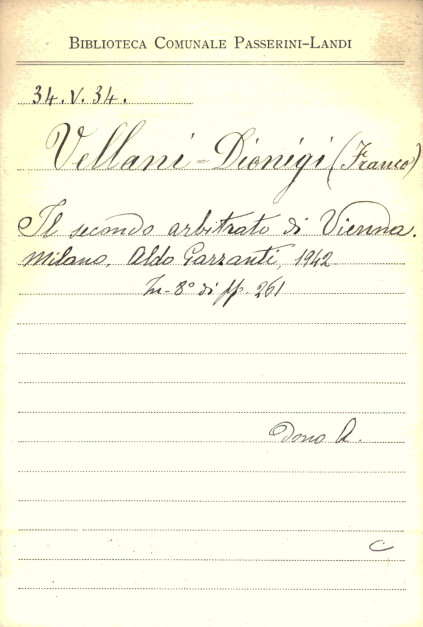 BIBLIOTECA COMUNALE PASSERINI-LANDI
34.V.34.
Vellani-Dionigi (Franco)
Il secondo arbitrato di Vienna.
Milano, Aldo Garzanti, 1942
In-8° di pp. 261
Dono A.
C